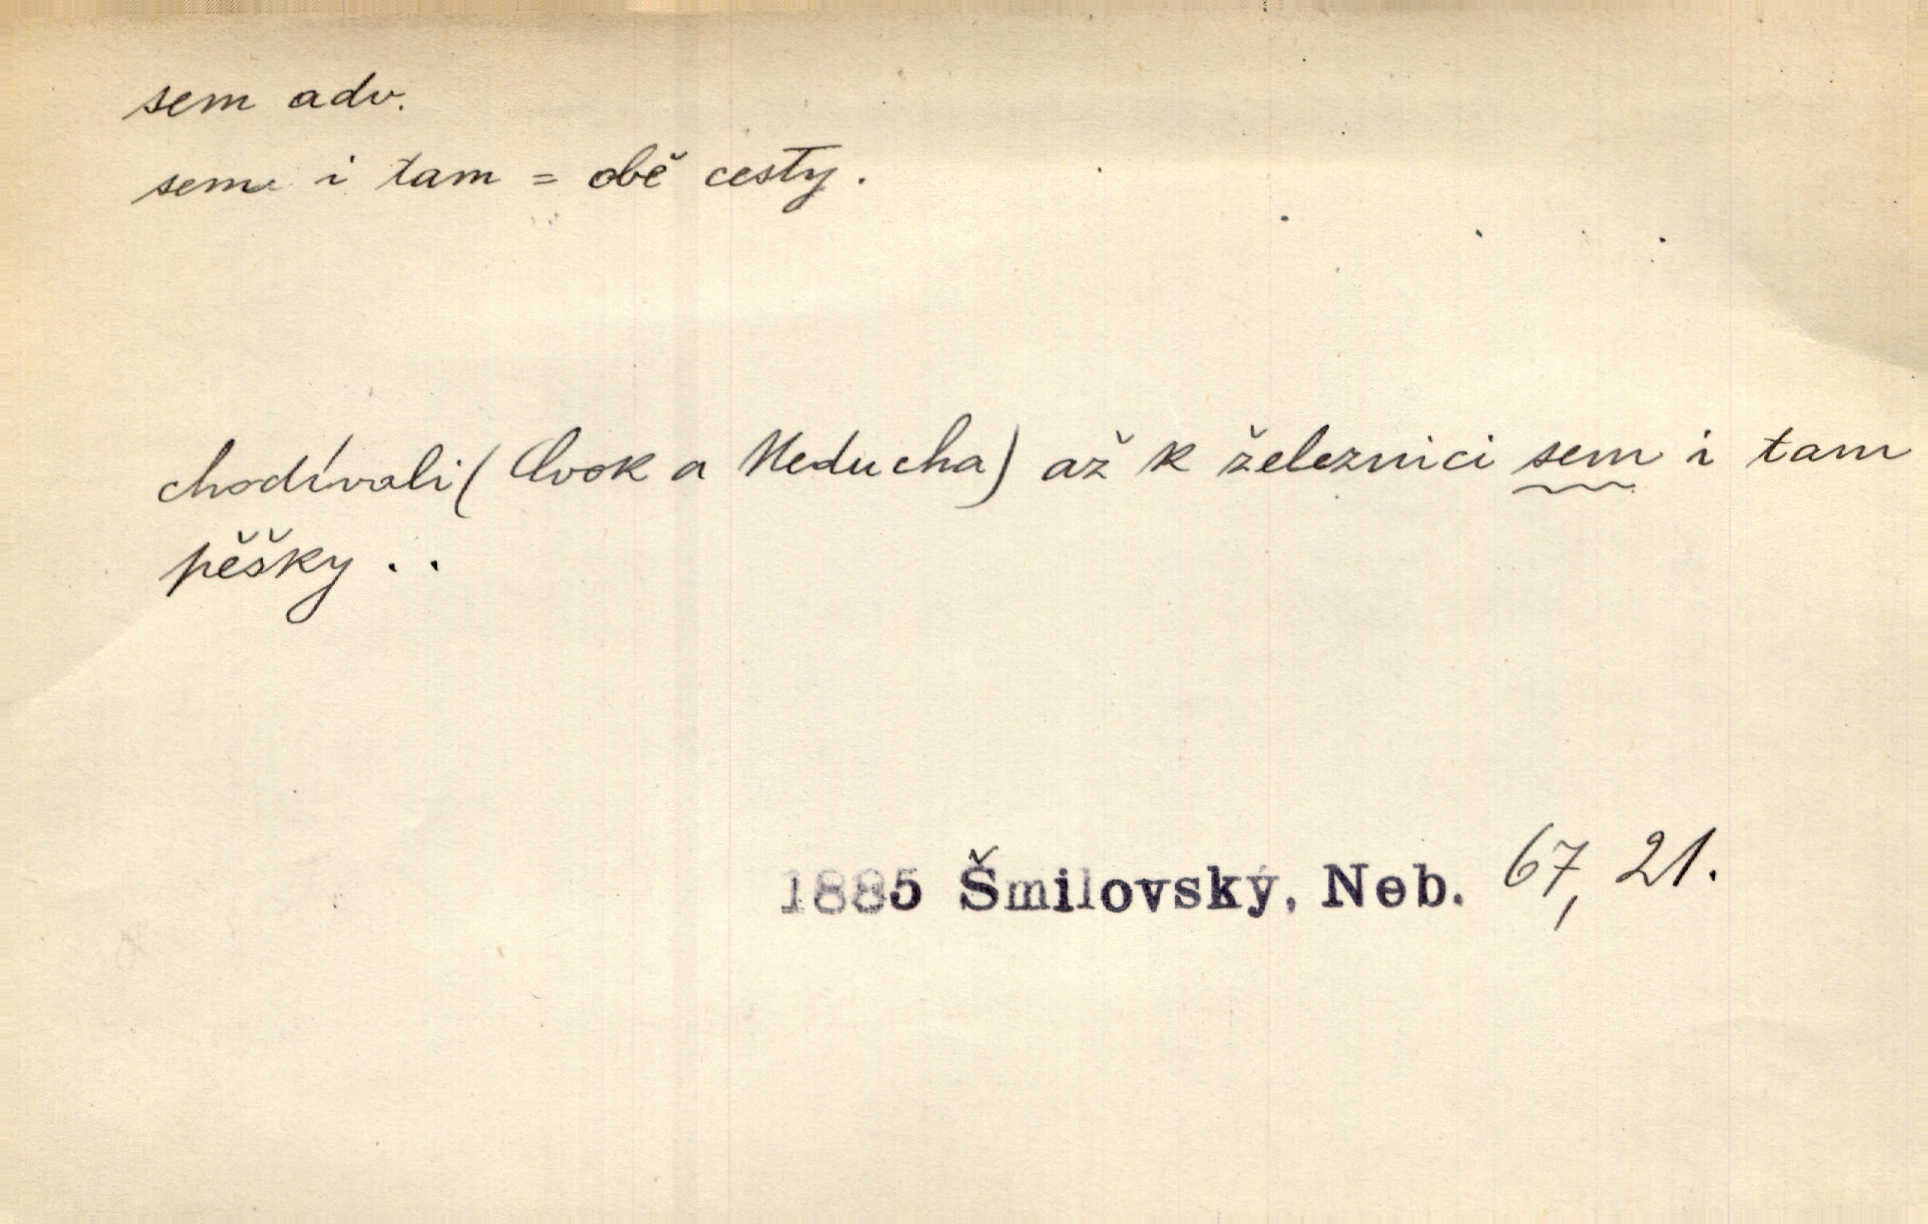 sem adv.
sem i tam = obě cesty.
chodívali ( a Neducha) až k železnici sem i tam
pěšky . .
1885 Šmilovský, Neb. 67, 21.